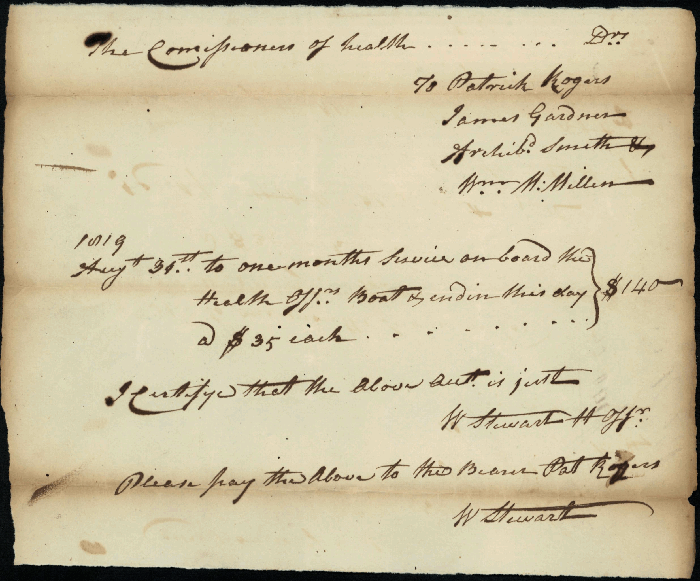 The Comissioners of health . . . . . . . . . Drs
To Patrick Rogers
James Gardner
Archibd Smith &
Wm McMillen
1819
Augt 31th to one months Service on board the
Health Offrs Boat & endin this day
a $35 each . . . . . . . $140
I Certifye that the Above Act. is just
W Stewart H Offr
Please pay the Above to the Bearer Pat Rogers
W Stewart